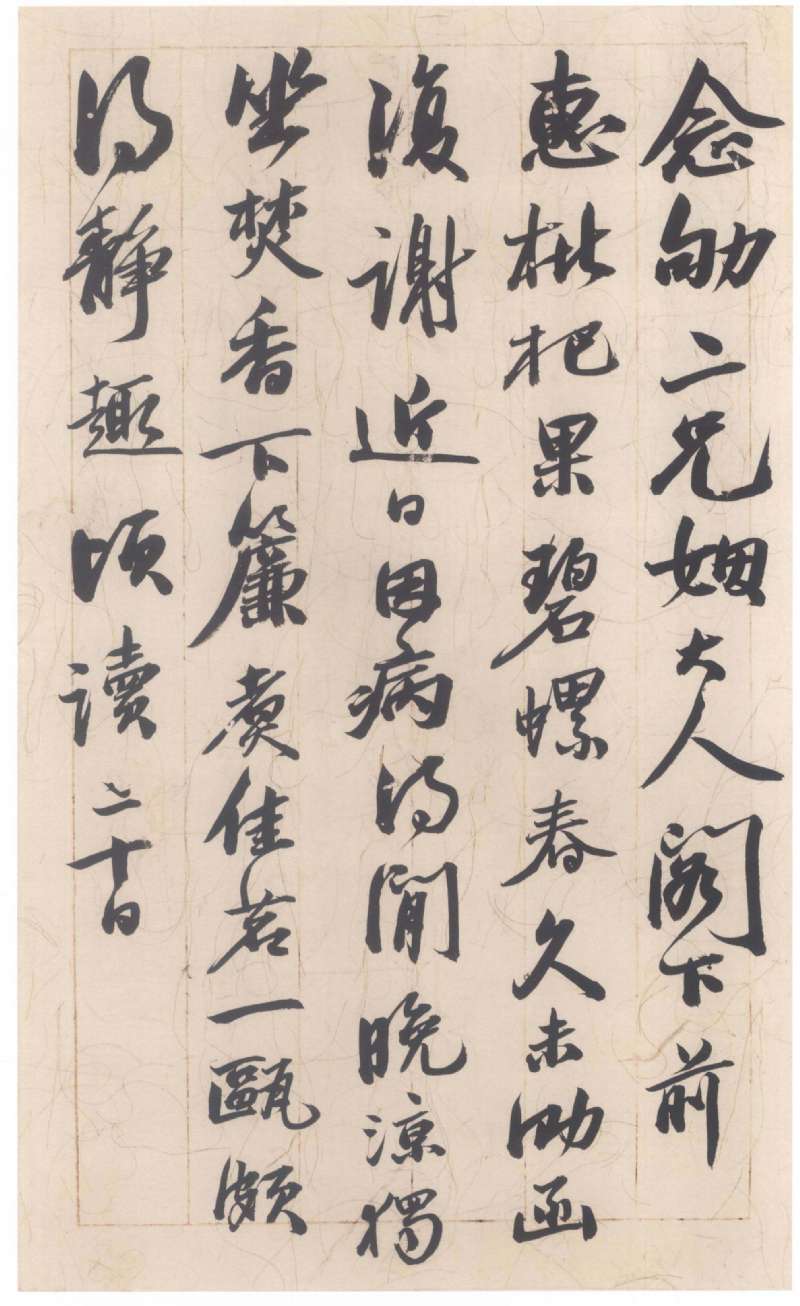 念劬二兄姻大人阁下前
惠枇杷果碧螺春久未函
復谢近日因病得閒晚涼獨
坐焚香下簾煮佳茗一甌頗
得靜趣頃读二十日